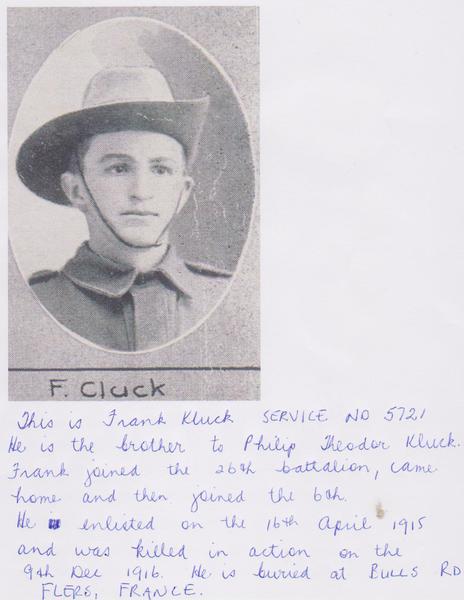 F. Cluck
This is Frank Kluck SERVICE NO 5721
He is the brother to Philip Theodor Kluck.
Frank joined the 26th battalion, came
home and then joined the 6th.
He enlisted on the 16th April 1915
and was killed in action on the
9th Dec 1916. He is buried at BULLS RD
FLERS, FRANCE.